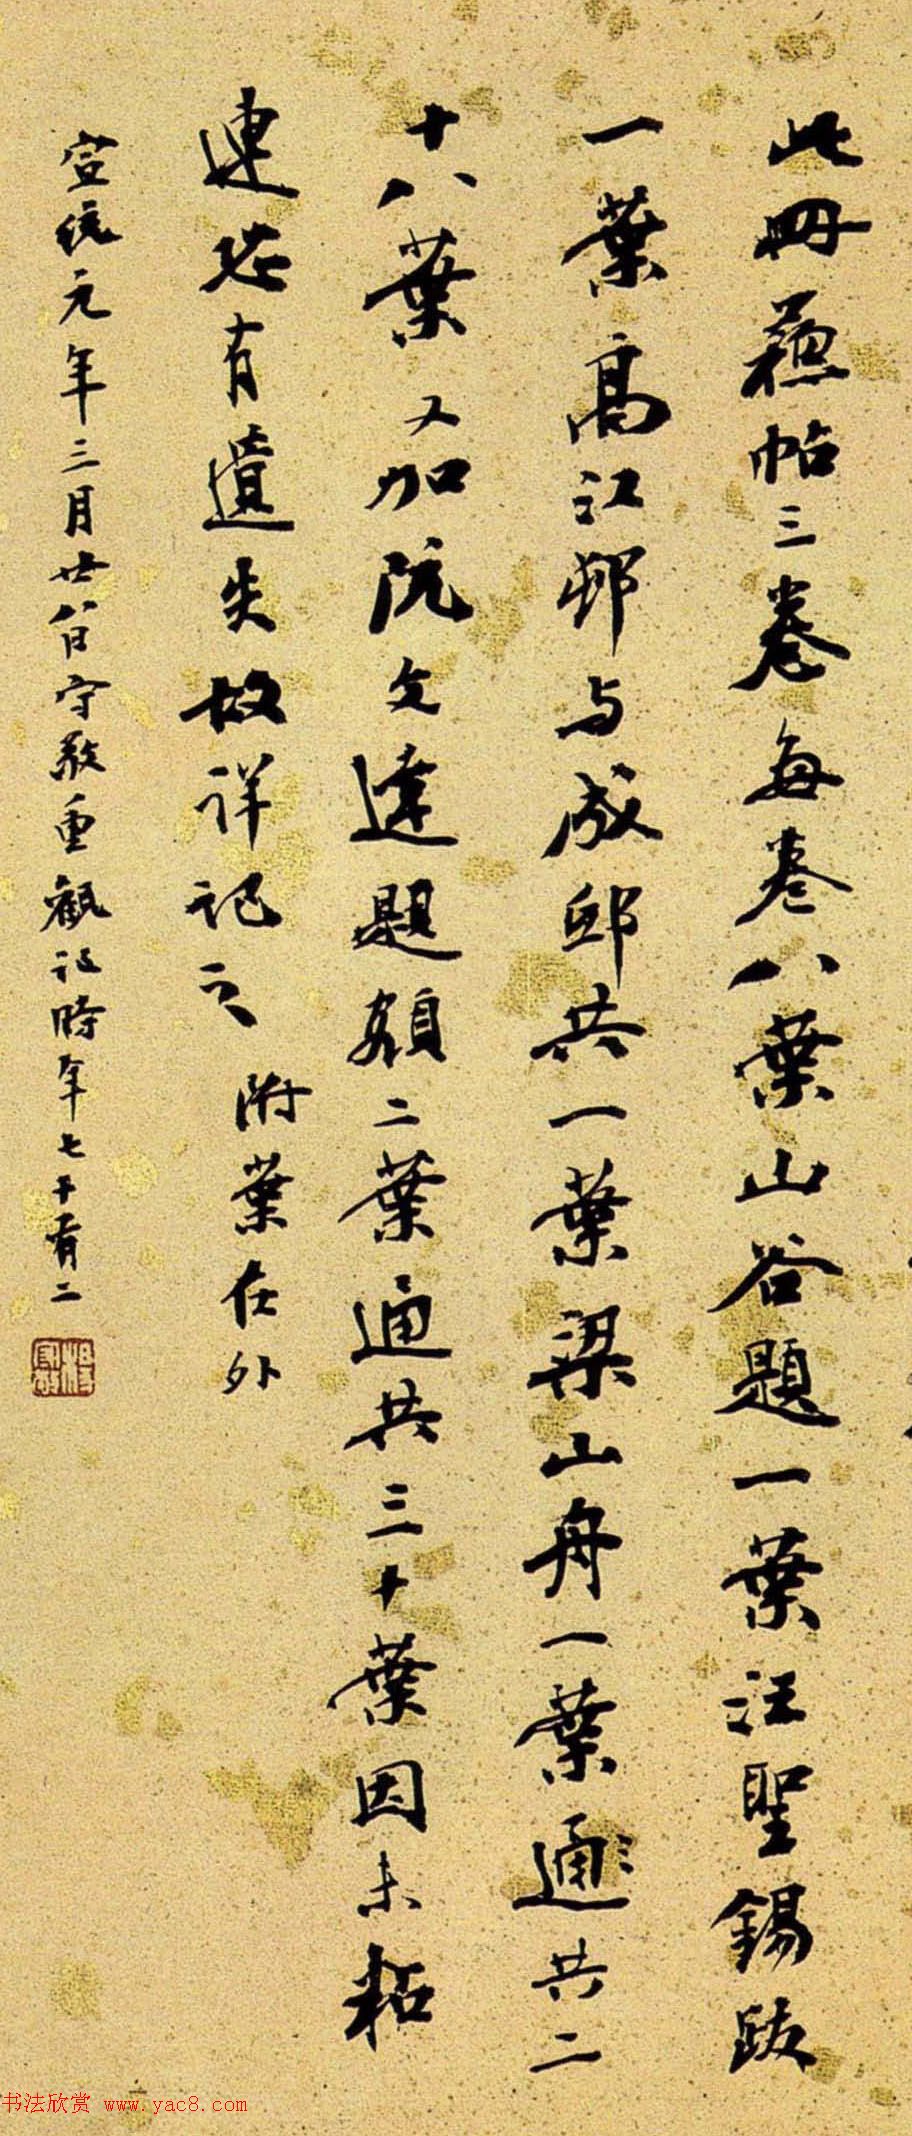 此冊蘇帖三卷每卷八葉山谷題一葉汪聖錫跋
一葉高江邨与成邸共一葉梁山舟一葉通共二
十八葉又加阮文達題額二葉通共三十葉因未粘
連恐有遺失故詳記之 附葉在外
宣統元年三月廿八日守敬重觀記時年七十有二
书法欣赏 www.yac8.com